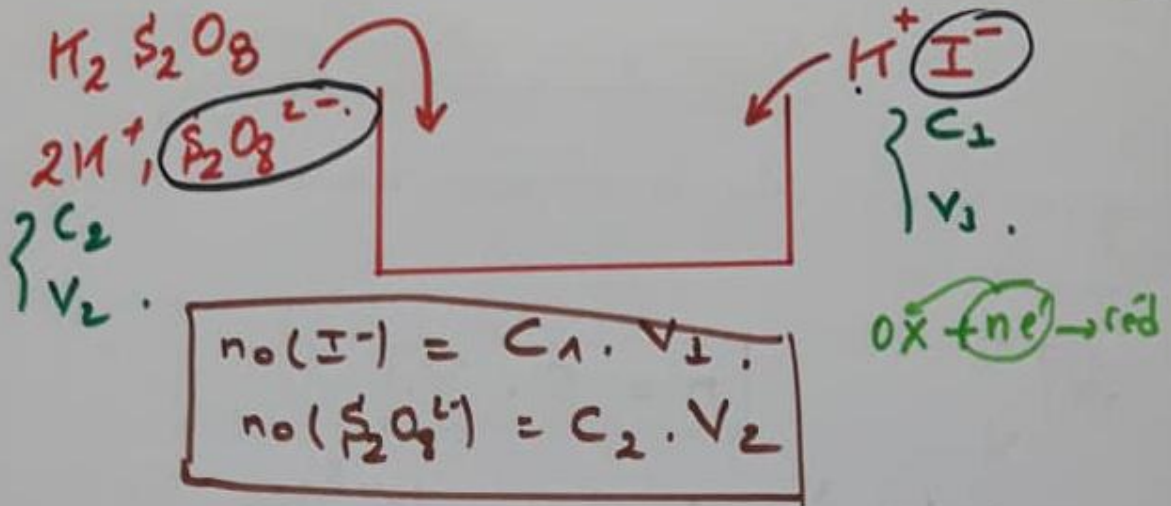 K₂ S₂O₈
2K⁺, S₂O₈²⁻.
C₂
V₂ .
K⁺ I⁻
C₁
V₁ .
ox + ne⁻ → red
n₀(I⁻) = C₁ . V₁ .
n₀(S₂O₈²⁻) = C₂ . V₂